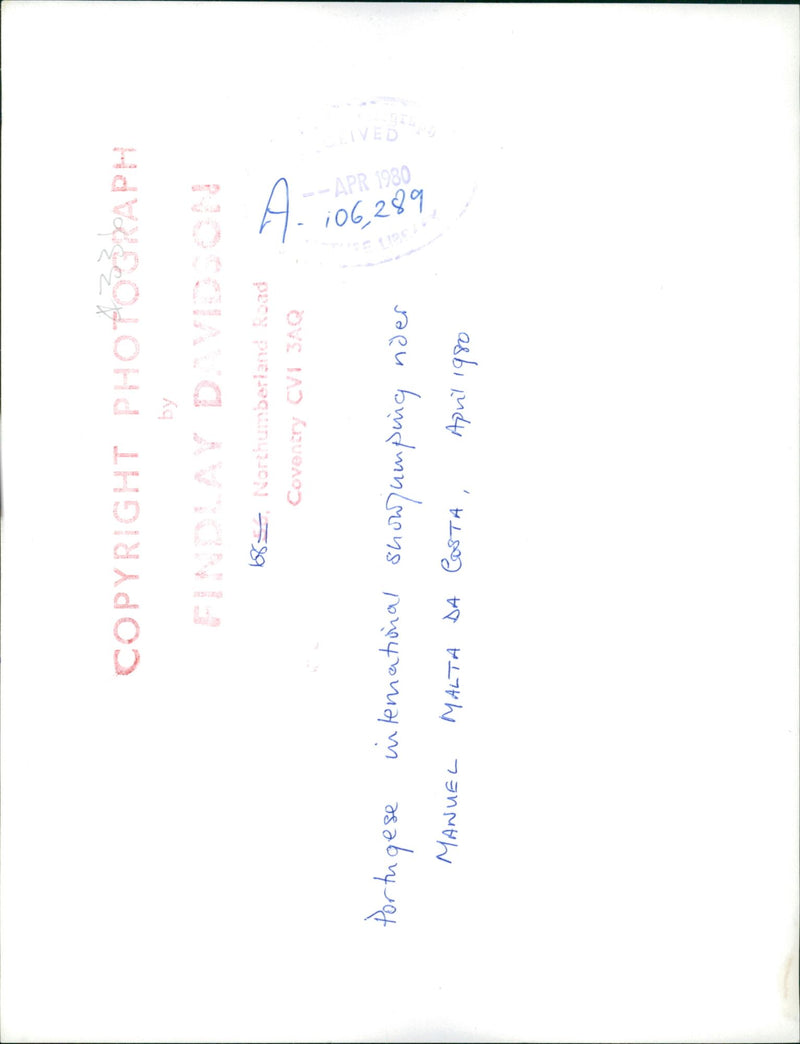 COPYRIGHT PHOTOGRAPH
by
FINDLAY DAVIDSON
168 56, Northumberland Road
Coventry CV1 3AQ
A336
CEIVED
-- APR 1980
A- 106,289
Portugese international showjumping rider
MANUEL MALTA DA COSTA, April 1980